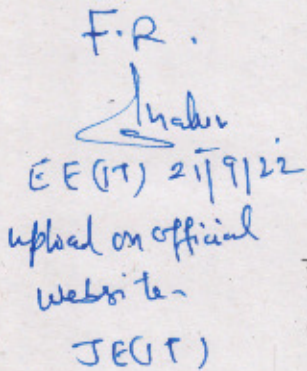 F.R.
EE(IT) 21/9/22
upload on official
website
JE(IT)